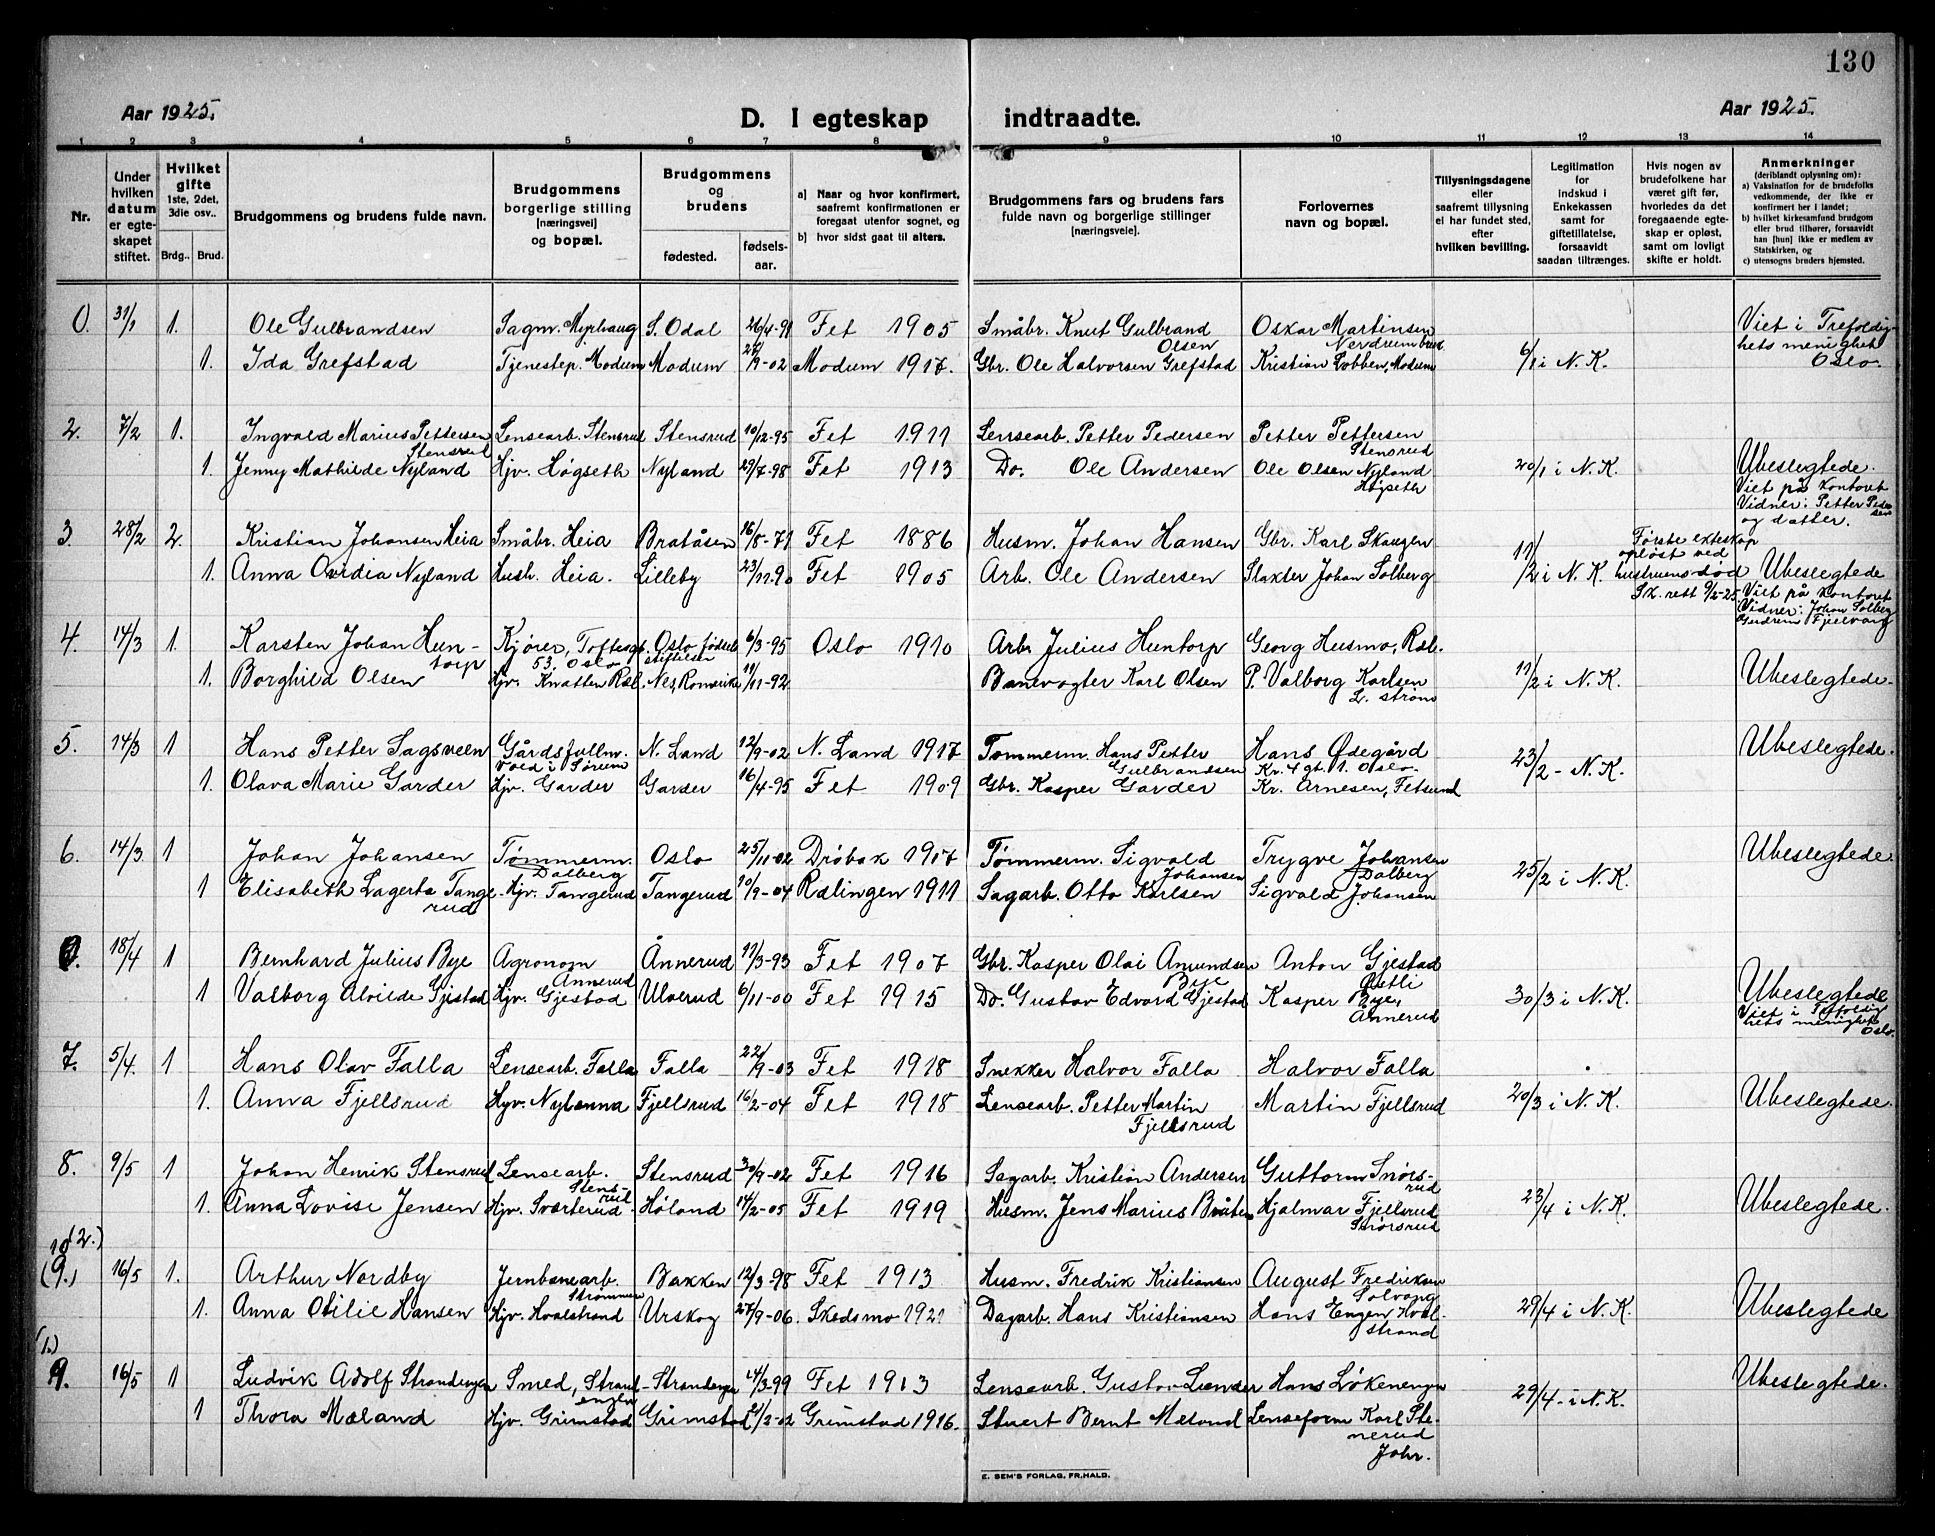 130
Aar 1925.
D. I egteskap indtraadte.
Aar 1925.
1 2 3 4 5 6 7 8 9 10 11 12 13 14
Nr.
Under hvilken datum er egteskapet stiftet.
Hvilket gifte 1ste, 2det, 3die osv..
Brdg.. Brud.
Brudgommens og brudens fulde navn.
Brudgommens borgerlige stilling [næringsvei] og bopæl.
Brudgommens og brudens
fødested. fødselsaar.
a) Naar og hvor konfirmert, saafremt konfirmationen er foregaat utenfor sognet, og
b) hvor sidst gaat til alters.
Brudgommens fars og brudens fars fulde navn og borgerlige stillinger [næringsveie].
Forlovernes navn og bopæl.
Tillysningsdagene eller saafremt tillysning ei har fundet sted, efter hvilken bevilling.
Legitimation for indskud i Enkekassen samt for giftetillatelse, forsaavidt saadan tiltrænges.
Hvis nogen av brudefolkene har været gift før, hvorledes da det foregaaende egteskap er opløst, samt om lovligt skifte er holdt.
Anmerkninger (deriblandt oplysning om):
a) Vaksination for de brudefolks vedkommende, der ikke er konfirmert her i landet;
b) hvilket kirkesamfund brudgom eller brud tilhører, forsaavidt han [hun] ikke er medlem av Statskirken, og
c) utensogns bruders hjemsted.
0. 31/1 1. Ole Gulbrandsen Sagm. Myrhaug S. Odal 26/4-91 Fet 1905 Småbr. Knut Gulbrand Olsen Oskar Martinsen Nerdrum Viet i Trefoldighets menighet Oslo.
1. Ida Grefstad Tjenestep. Modum Modum 9-02 Modum 1917. Gbr. Ole Halvorsen Grefstad Kristian Lobben, Modum 6/1 i N.K.
2. 7/2 1. Ingvald Marius Pettersen Stensrud Lensearb. Stensrud Stensrud 10/12-95 Fet 1911 Lensearb. Petter Pedersen Petter Pettersen Stensrud
1. Jenny Mathilde Nyland Hjv. Høgseth Nyland 29/7-98 Fet 1913 Do. Ole Andersen Ole Olsen Nyland Høgseth 20/1 i N.K. Ubeslegtede. Viet på kontoret Vidner: Petter og datter.
3 28/2 2. Kristian Johansen Heia Småbr. Heia Bratåsen 16/8-71 Fet 1886 Husm. Johan Hansen Gbr. Karl Skaugen Første exteskap opløst ved hustruens død Sk. rett 9/2-25
1. Anna Ovidia Nyland Hush. Heia. Lilleby 23/11-90 Fet 1905 Arb. Ole Andersen Slakter Johan Solberg 11/2 i N.K. Ubeslegtede Viet på kontoret Vidner: Johan Solberg Gudrun Fjelvang
4. 14/3 1. Karsten Johan Huntorp Kjører, Toftesgt. 53. Oslo Oslo fødselsstiftelse 6/3-95 Oslo 1910 Arb. Julius Huntorp Georg Husmo, Ræl.
1. Borghild Olsen Hjv. Knatten Ræl. Nes, Romerike 11/11-92 Banevogter Karl Olsen P. Valborg Karlsen L. strøm 11/2 i N.K. Ubeslegtede.
5. 14/3 1 Hans Petter Sagsveen Gårdsfullm. Vold i Sørum N. Land 12/9-02 N. Land 1917 Tømmerm. Hans Petter Gulbrandsen Hans Ødegård Kr. 4 gt. 1. Oslo. Ubeslegtede.
1. Olava Marie Garder Hjv. Garder Garder 16/4-95 Fet 1909 Gbr. Kasper Garder Kr. Arnesen, Fetsund 23/2 - N.K.
6. 14/3 1 Johan Johansen Tømmerm. Dalberg Oslo 25/11-02 Drøbak 1917 Tømmerm. Sigvald Johansen Trygve Johansen Dalberg Ubeslegtede
1 Elisabeth Lagerta Tangerud Hjv. Tangerud Tangerud 10/9-04 Rælingen 1911 Sagarb. Otto Karlsen Sigvald Johansen 25/2 i N.K.
0. 18/4 1 Bernhard Julius Bye Agronom Ånnerud Ånnerud 17/3-93 Fet 1907 Gbr. Kasper Olai Amundsen Bye Anton Gjestad
1 Valborg Alvilde Gjestad Hjv. Gjestad Ulverud 6/11-00 Fet 1915 Do. Gustav Edvard Gjestad Kasper Bye, Ånnerud 30/3 i N.K. Ubeslegtede Viet i Trefoldighets menighet Oslo.
7. 5/4. 1 Hans Olav Falla Lensearb. Falla Falla 22/9-03 Fet 1918 Snekker Halvor Falla Halvor Falla
1. Anna Fjellsrud Hjv. Nylænna Fjellsrud 16/2-04 Fet 1918 Lensearb. Petter Martin Fjellsrud Martin Fjellsrud 20/3 i N.K. Ubeslegtede.
8. 9/5 1 Johan Henrik Stensrud Lensearb. Stensrud Stensrud 30/9-02 Fet 1916 Sagarb. Kristian Andersen Guttorm Snørsrud
1. Anna Lovise Jensen Hjv. Svarterud Høland 14/2-05 Fet 1919 Husm. Jens Marius Bråten Hjalmar Fjellsrud 23/4 i N.K. Ubeslegtede.
10 (2.)
(9.) 16/5 1. Arthur Nordby Jernbanearb. Strømmen Bakken 12/3-98 Fet 1913 Husm. Fredrik Kristiansen August Fredriksen Solvang
1. Anna Otilie Hansen Hjv. Hvalstrand Urskog 27/9-06. Skedsmo 1921 Dagarb. Hans Kristiansen Hans Engen Hvalstrand 29/4 i N.K. Ubeslegtede
(1.)
9. 16/5 1 Ludvik Adolf Strandengen Smed, Strandengen Strandengen 24/3-99 Fet 1913 Lensearb. Gustav Lunder Hans Løkenengen Ubeslegtede.
1 Thora Mæland Hjv. Grimstad Grimstad 2-02 Grimstad 1916. Stuert Bernt Mæland Lenseform Karl Stenerud Johr. 29/4 - i N.K.
E. SEM'S FORLAG, FR.HALD.